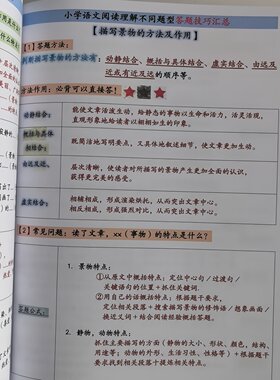 小学语文阅读理解不同题型答题技巧汇总
【描写景物的方法及作用】
【1】答题方法:
判断描写景物的方法有:动静结合、概括与具体结合、虚实结合、由远及
近或有近及远的顺序等。
方法作用:必背可以直接答!
动静结合:
能使文章活泼生动,给静态的事物以生命和活力,活灵活现,
直观形象地给读者以栩栩如生的印象。
概括与具体
相结合:
既简洁地写明要义,又具体地叙述细节,使文章更加生动。
由远及近:
层次清晰,使读者对所描写的景物产生更加全面的认识,
获得更完美的感受。
虚实结合:
相辅相成,形成渲染烘托,从而突出文章中心。
相反相成,形成强烈对比,从而突出文章中心。
【2】常见问题:读了文章,xx(事物)的特点是什么?
答题公式:
1. 景物特点:
①从原文中概括特点:定位中心句/过渡句/
关键语句的位置+抓住关键词。
②用自己的话概括特点:根据题干要求,
定位相关段落+搜索描写景物的修饰语/想象画面/
换近义词+结合阅读经验概括答题。
2. 静物,动物特点:
抓住主要描写的方面(静物的大小、形状、颜色、结构、
用途等;动物的外形、生活习性、性格等)+根据题干
要求找到相关段落+提炼相关特点。